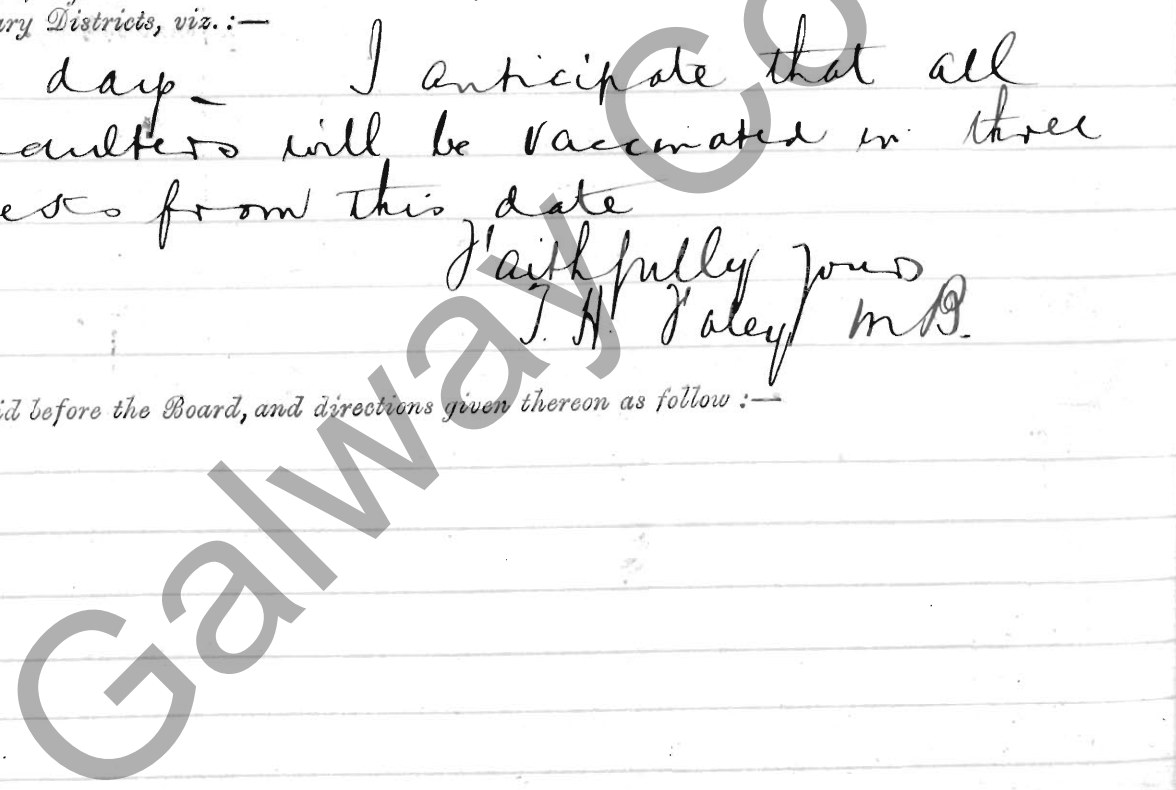 ary Districts, viz. :—
day_ I anticipate that all
aulters will be vaccinated in three
eeks from this date
Faithfully yours
T. H. Foley MB.
id before the Board, and directions given thereon as follow :—
Galway Co